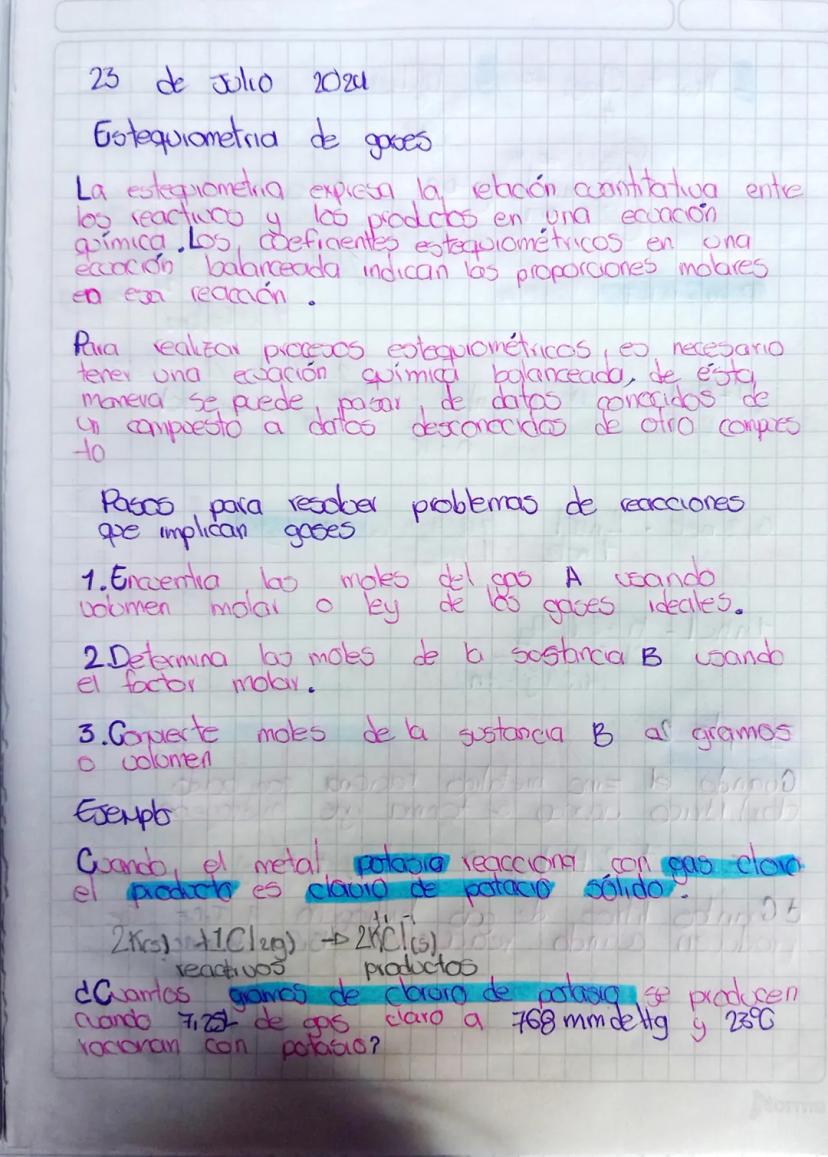 23 de Julio 2024
Estequiometria de gases
La estequiometria expresa la relación cuantitativa entre
los reactivos y los productos en una ecuación
química. Los coeficientes estequiométricos en una
ecuación balanceada indican las proporciones molares
en esa reacción.
Para realizar procesos estequiométricos, es necesario
tener una ecuación química balanceada, de ésta
manera se puede pasar de datos conocidos de
un compuesto a datos desconocidos de otro compues
to
Pasos para resolver problemas de reacciones
que implican gases
1. Encuentra las moles del gas A usando
volumen molar o ley de los gases ideales.
2 Determina las moles de la sostancia B usando
el factor molar.
3. Convierte moles de la sustancia B a gramos
o volumen
Ejemplo
Cuando el metal potasio reacciona con gas cloro
el producto es cloruro de potacio sólido.
2K(s) + 1Cl2(g) → 2KCl(s)
reactivos productos
¿Cuantos gramos de cloruro de potasio se producen
cuando 7,25L de gas cloro a 768 mm de Hg y 23°C
con potasio?